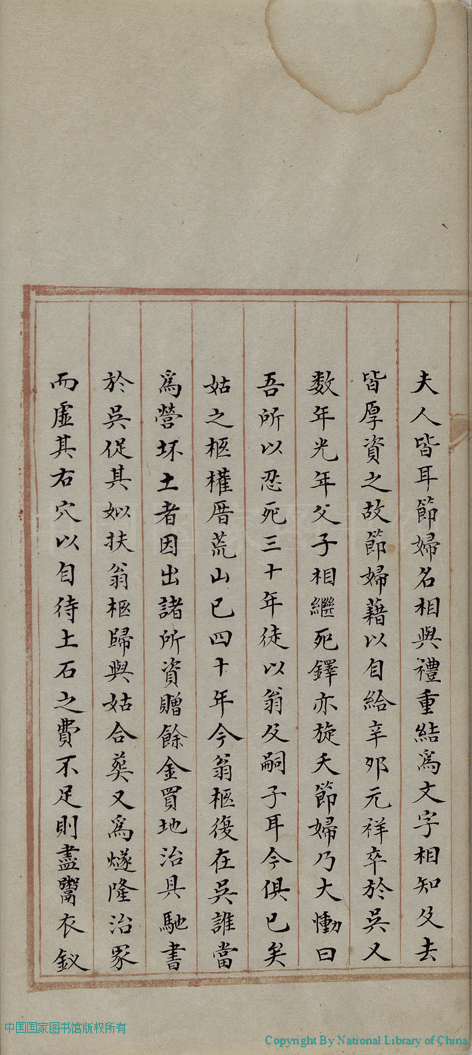 夫人皆耳節婦名相與禮重結爲文字相知及去
皆厚資之故節婦藉以自給辛夘元祥卒於吳又
数年光年父子相繼死鐸亦旋夭節婦乃大慟曰
吾所以忍死三十年徒以翁父嗣子耳今俱已矣
姑之柩權厝荒山已四十年今翁柩復在吳誰當
爲營坏土者因出諸所資贈餘金買地治具馳書
於吳促其姒扶翁柩歸與姑合葬又爲燧隆治冢
而虛其右穴以自待土石之費不足則盡鬻衣釵
中国国家图书馆版权所有
Copyright By National Library of China